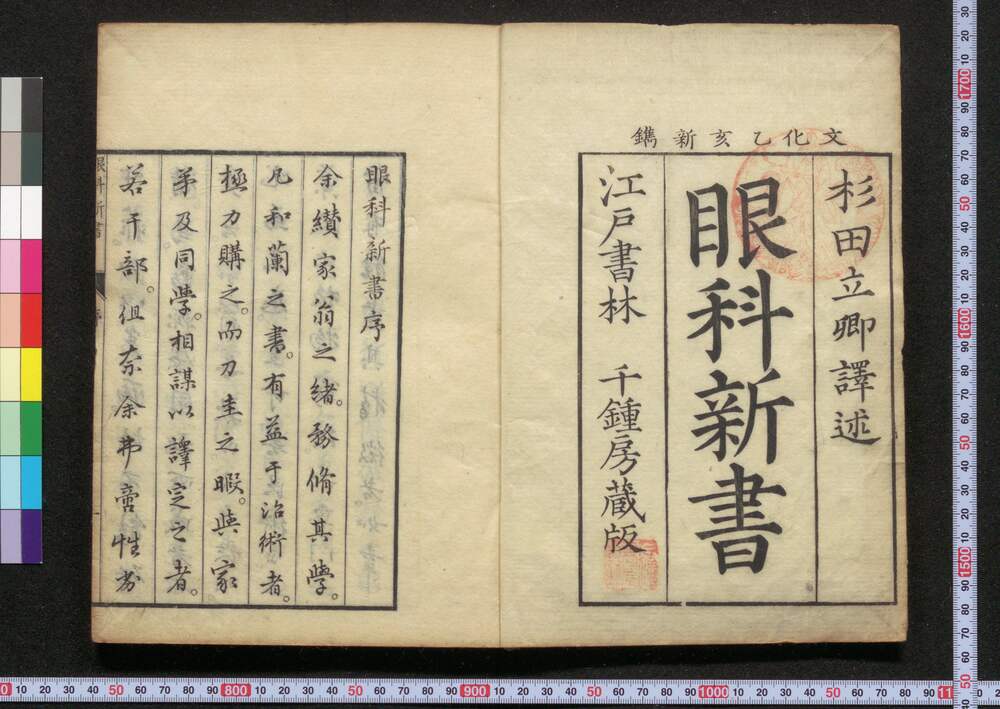 文化乙亥新鐫
杉田立卿譯述
眼科新書
江戸書林 千鍾房蔵版
眼科新書序
余纘家翁之緒。務脩其學。
凡和蘭之書。有益于治術者。
極力購之。而刀圭之暇。與家
弟及同學。相謀以譯定之者。
若干部。但奈余弗啻性劣
眼科新書